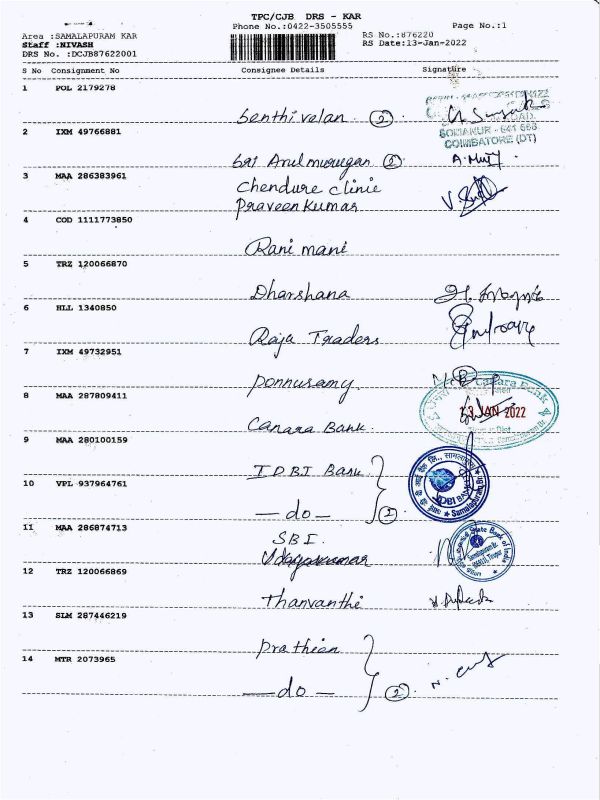 TPC/CJB DRS - KAR
Phone No.:0422-3505555 Page No.:1
Area :SAMALAPURAM KAR RS No.:876220
Staff :NIVASH RS Date:13-Jan-2022
DRS No. :DCJB87622001
S No Consignment No Consignee Details Signature
1 POL 2179278
Senthivelan (2)
SOMANUR - 641 668
COIMBATORE (DT)
2 IXM 49766881
Sri Arulmurugan (5)
3 MAA 286383961
Chendure clinic
Praveen Kumar
4 COD 1111773850
Rani mani
5 TRZ 120066870
Dharshana
6 HLL 1340850
Raja Traders
7 IXM 49732951
Ponnusamy.
8 MAA 287809411
Canara Bank.
Canara Bank
13 JAN 2022
9 MAA 280100159
IDBI Bank
IDBI BANK
10 VPL 937964761
— do — (2)
11 MAA 286874713
SBI.
Udayakumar
State Bank of India
12 TRZ 120066869
Thanvanthi
13 SLM 287446219
14 MTR 2073965
— do — (2)